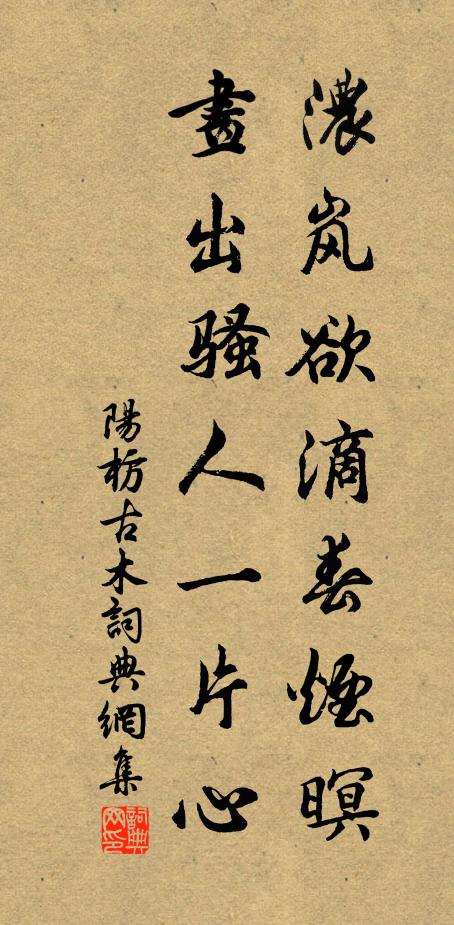 濃岚欲滴春煙暝
畫出騷人一片心
陽枋古木詞典網集
詞典網印